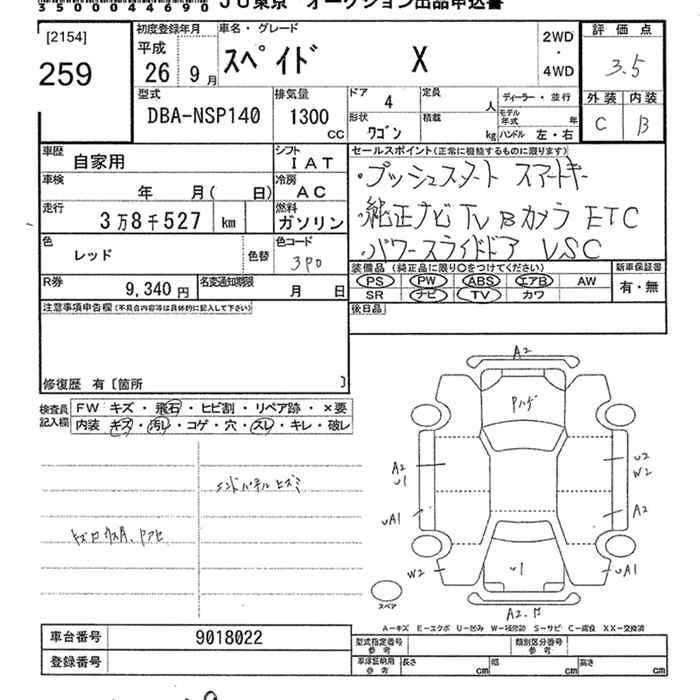 35000044690 JU東京 オークション出品申込書
[2154]
259
初度登録年月
平成
26年 9月
車名・グレード
スペイド X
2WD
・
4WD
評価点
3.5
外装 内装
C B
型式
DBA-NSP140
排気量
1300 CC
ドア 4
形状 ワゴン
定員 人
積載 kg
ディーラー・並行
モデル年式 年
ハンドル 左・右
車歴 自家用
シフト IAT
車検 年 月( 日)
冷房 AC
走行 3万8千527 km
燃料 ガソリン
色 レッド 色替
色コード 3P0
R券 9,340円
名変通知期限 月 日
セールスポイント(正常に機能するものに限ります)
・プッシュスタート スマートキー
・純正ナビ TV Bカメラ ETC
・パワースライドドア VSC
装備品 (純正品に限り○をつけてください)
PS PW ABS エアB AW
SR ナビ TV カワ
新車保証書
有・無
後日品
注意事項申告欄(不具合内容等は具体的に記入して下さい)
修復歴 有〔箇所 〕
検査員記入欄
FW キズ・飛石・ヒビ割・リペア跡・×要
内装 キズ・汚レ・コゲ・穴・スレ・キレ・破レ
エンドパネルヒズミ
A2
Pハゲ
A2
U1
U2
W2
UA1
A2
W2
U1
UA1
スペア
A2.
A-キズ E-エクボ U-凹み W-補修跡 S-サビ C-腐食 XX-交換済
車台番号 9018022
登録番号
型式指定番号 参考
類別区分番号 参考
車庫証明用 参考
長さ cm
幅 cm
高さ cm